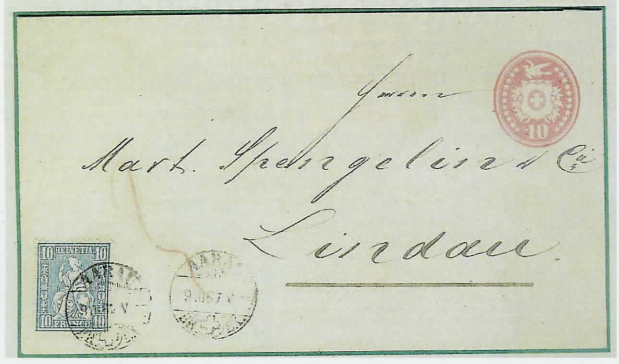 10
Herren
Mart. Spengelin & Cie
Lindau
10 HELVETIA 10
10 FRANCO 10
AARAU
AARAU
9 67 V